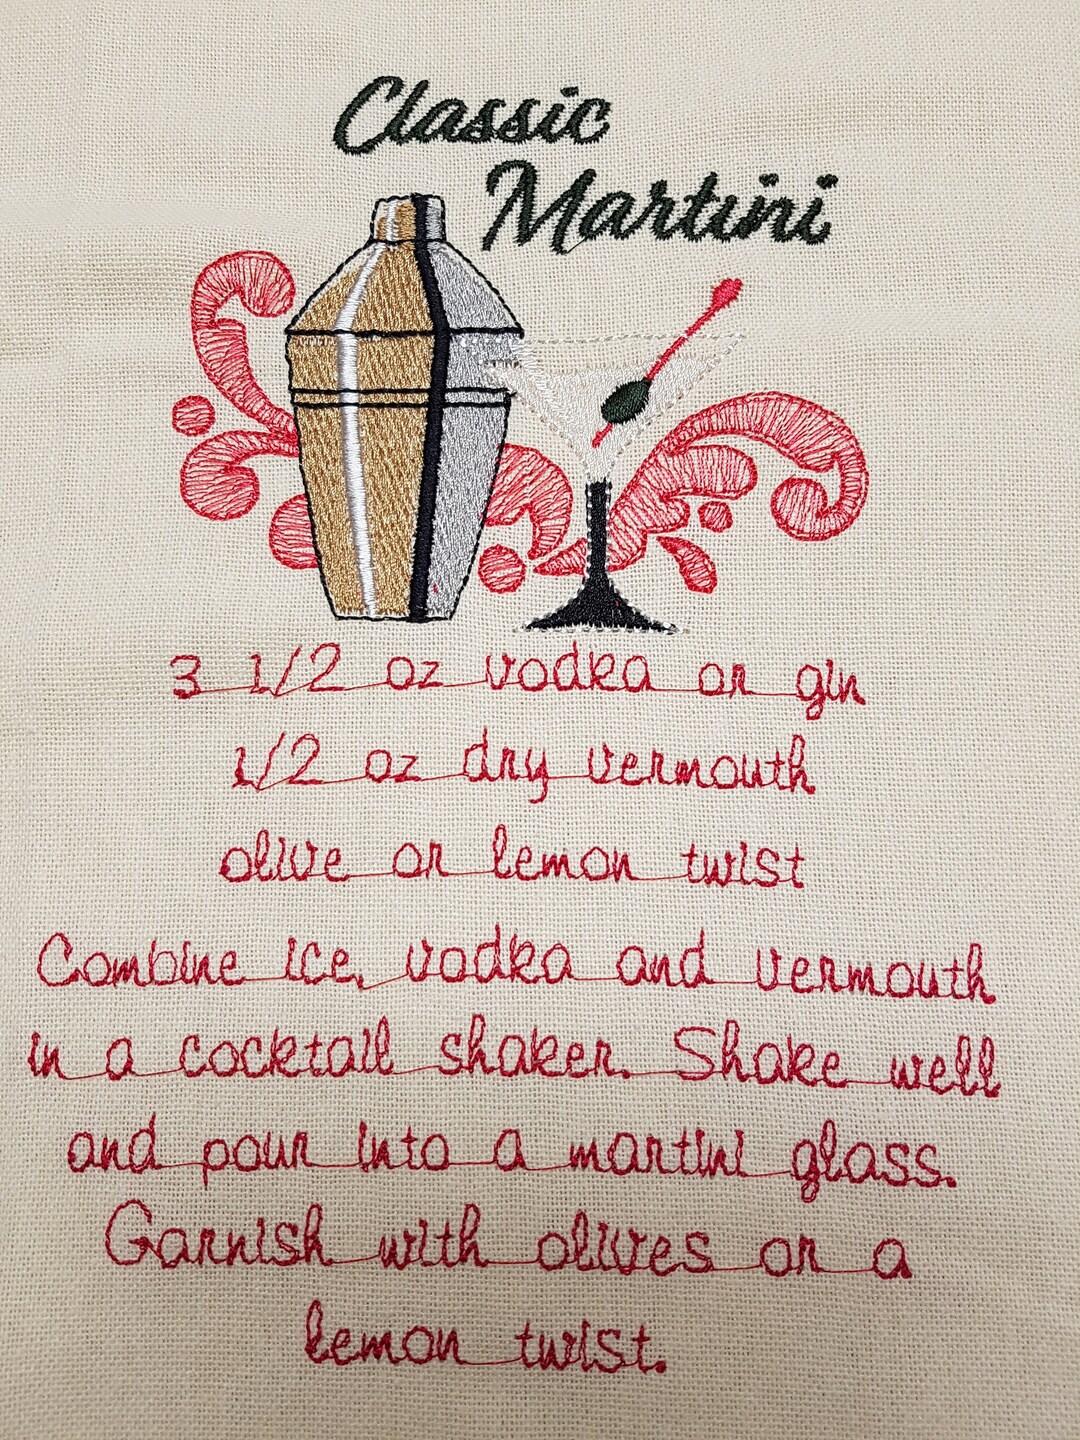 Classic
Martini
3 1/2 oz vodka or gin
1/2 oz dry vermouth
olive or lemon twist
Combine ice, vodka and vermouth
in a cocktail shaker. Shake well
and pour into a martini glass.
Garnish with olives or a
lemon twist.